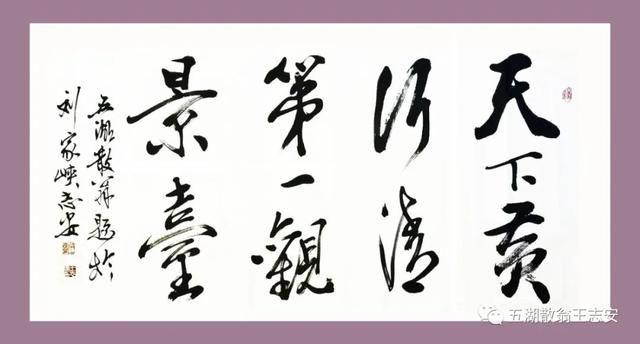 天下黄
河清
第一觀
景臺
五湖散翁題於
刘家峡志安
五湖散翁王志安